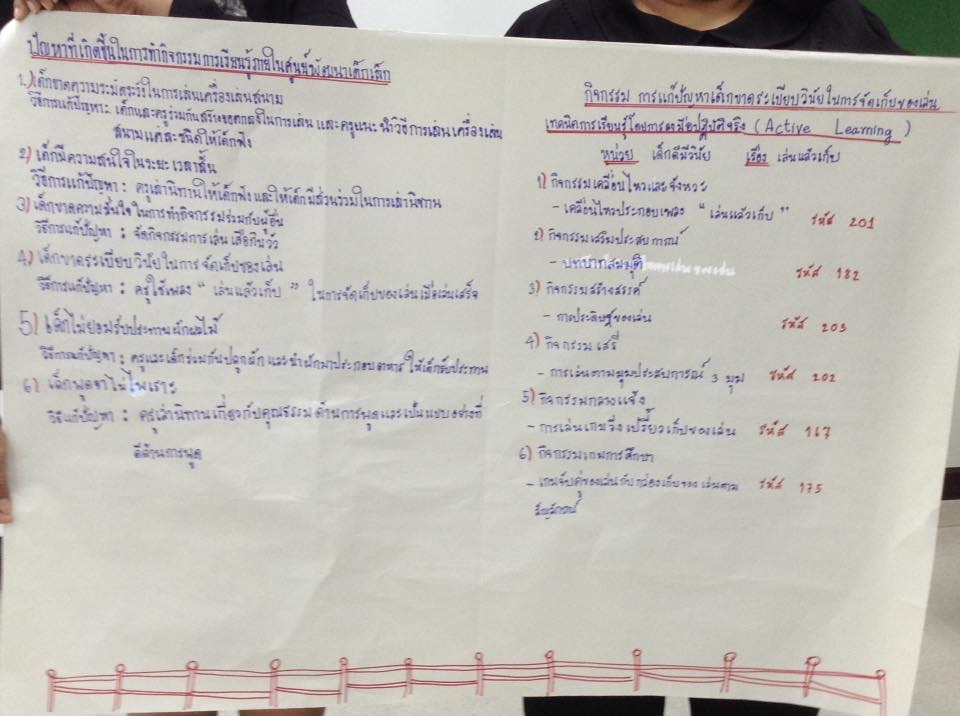 ปัญหาที่เกิดขึ้นในการทำกิจกรรมการเรียนรู้ภายในศูนย์พัฒนาเด็กเล็ก
1.) เด็กขาดความระมัดระวังในการเล่นเครื่องเล่นสนาม
วิธีการแก้ปัญหา: เด็กและครูร่วมกันสร้างข้อตกลงในการเล่น และครูแนะนำวิธีการเล่นเครื่องเล่น
สนามแต่ละชนิดให้เด็กฟัง
2) เด็กมีความสนใจในระยะเวลาสั้น
วิธีการแก้ปัญหา : ครูเล่านิทานให้เด็กฟังและให้เด็กมีส่วนร่วมในการเล่านิทาน
3) เด็กขาดความมั่นใจในการทำกิจกรรมร่วมกับผู้อื่น
วิธีการแก้ปัญหา : จัดกิจกรรมการเล่นเสือกินวัว
4) เด็กขาดระเบียบวินัยในการจัดเก็บของเล่น
วิธีการแก้ปัญหา : ครูใช้เพลง “ เล่นแล้วเก็บ ” ในการจัดเก็บของเล่นเมื่อเล่นเสร็จ
5) เด็กไม่ยอมรับประทานผักผลไม้
วิธีการแก้ปัญหา : ครูและเด็กร่วมกันปลูกผัก และนำผักมาประกอบอาหารให้เด็กรับประทาน
6) เด็กพูดจาไม่ไพเราะ
วิธีแก้ปัญหา : ครูเล่านิทานเกี่ยวกับคุณธรรมด้านการพูดและเป็นแบบอย่างที่
ดีด้านการพูด
กิจกรรม การแก้ปัญหาเด็กขาดระเบียบวินัยในการจัดเก็บของเล่น
เทคนิคการเรียนรู้โดยการลงมือปฏิบัติจริง (Active Learning)
หน่วย เด็กดีมีวินัย เรื่อง เล่นแล้วเก็บ
1) กิจกรรมเคลื่อนไหวและจังหวะ
- เคลื่อนไหวประกอบเพลง “ เล่นแล้วเก็บ ” รหัส 201
2) กิจกรรมเสริมประสบการณ์
- บทบาทสมมุติ รหัส 182
3) กิจกรรมสร้างสรรค์
- การประดิษฐ์ของเล่น รหัส 203
4) กิจกรรมเสรี
- การเล่นตามมุมประสบการณ์ 3 มุม รหัส 202
5) กิจกรรมกลางแจ้ง
- การเล่นเกมวิ่งเปรี้ยวเก็บของเล่น รหัส 167
6) กิจกรรมเกมการศึกษา
- เกมจับคู่ของเล่นกับกล่องเก็บของเล่นตาม รหัส 175
สัญลักษณ์